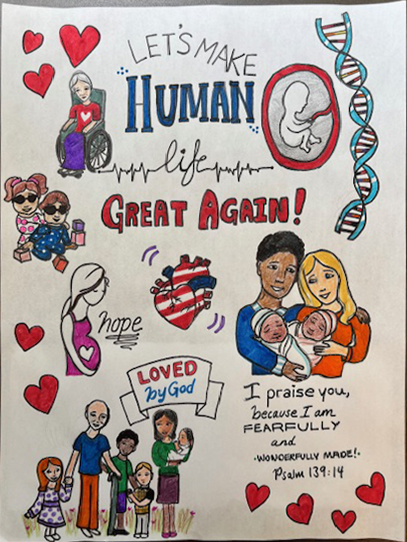 LET'S MAKE
HUMAN
life
GREAT AGAIN!
hope
LOVED
by God
I praise you,
because I am
FEARFULLY
and
·WONDERFULLY MADE!·
Psalm 139:14